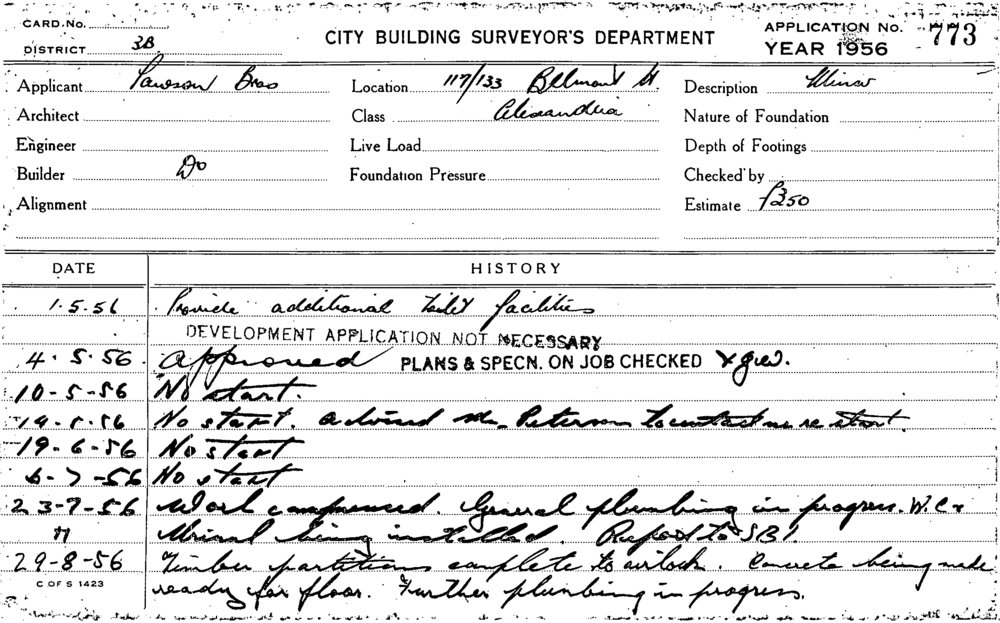 CARD. No.
DISTRICT 3B
CITY BUILDING SURVEYOR'S DEPARTMENT
APPLICATION No. 773
YEAR 1956
Applicant Lawson Bros
Location 117/133 Belmont St.
Description Minor
Architect
Class Alexandria
Nature of Foundation
Engineer
Live Load
Depth of Footings
Builder Do
Foundation Pressure
Checked by
Alignment
Estimate £350
DATE HISTORY
1.5.56 Provide additional toilet facilities
DEVELOPMENT APPLICATION NOT NECESSARY
4.5.56. Approved PLANS & SPECN. ON JOB CHECKED
10-5-56 No start.
No start. advised Mr. Peterson to contact me re start.
19-6-56 No start
6-7-56 No start
23-7-56 Work commenced. General plumbing in progress. W.C. &
" Urinal being installed. Report to S.B.I
29-8-56 Timber partitions complete to airlock. Concrete being made
C OF S 1423
ready for floor. Further plumbing in progress.